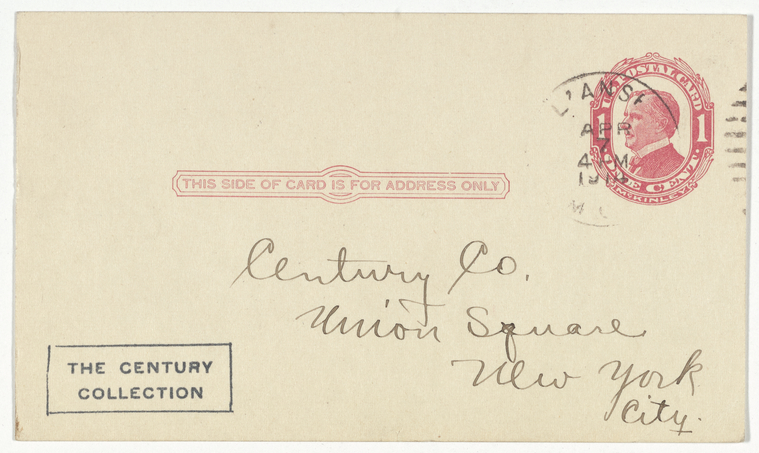 U.S. POSTAL CARD
1 1
ONE CENT.
McKINLEY
L'ANSE
APR
7
THIS SIDE OF CARD IS FOR ADDRESS ONLY
Century Co.
Union Square
New York
City.
THE CENTURY
COLLECTION